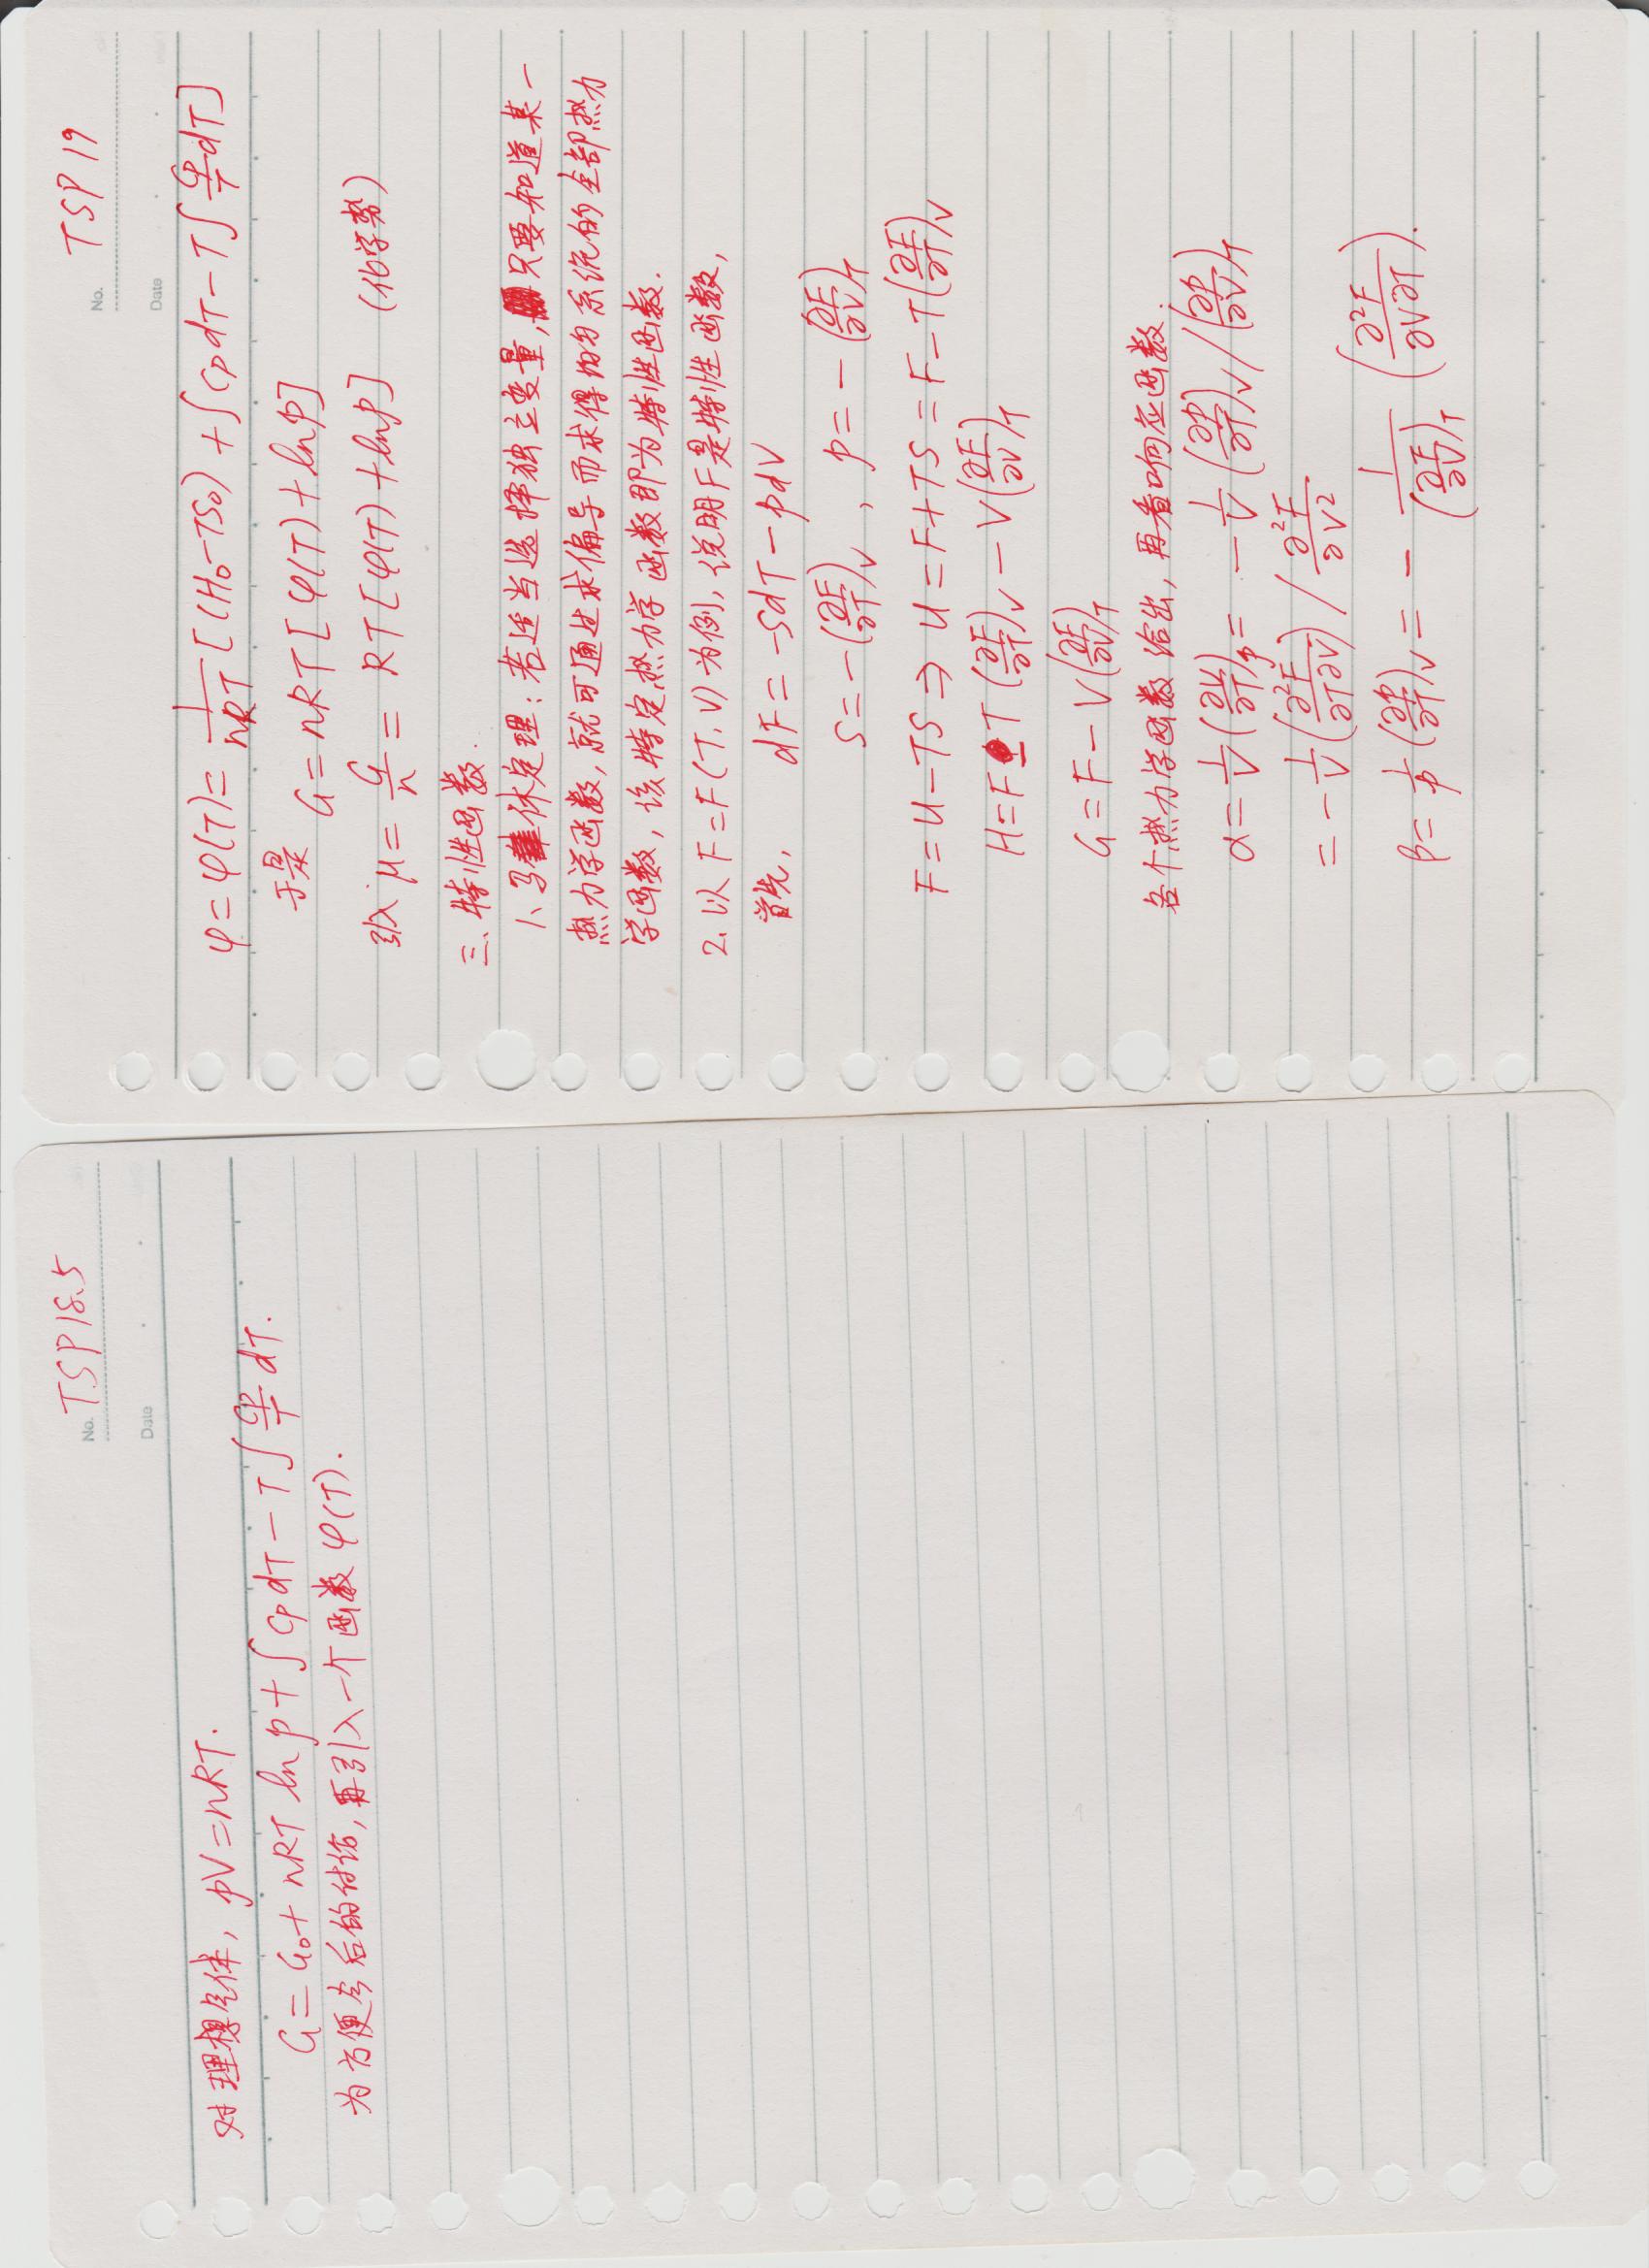 No. TSP18.5
Date
对理想气体, pV=nRT.
G=G₀+nRT ln p+∫Cp dT-T∫Cp/T dT.
为方便今后的讨论, 再引入一个函数 φ(T).
No. TSP 19
Date
φ=φ(T)=1/nRT [(H₀-TS₀)+∫Cp dT-T∫Cp/T dT]
于是 G=nRT[φ(T)+ln p]
引入 μ=G/n=RT[φ(T)+ln p] (化学势)
三、特性函数.
1、马休定理: 若适当选择独立变量, 只要知道某一
热力学函数, 就可通过求偏导而求得均匀系统的全部热力
学函数, 该特定热力学函数即为特性函数.
2、以 F=F(T,V) 为例, 说明F是特性函数,
首先, dF=-SdT-pdV
S=-(∂F/∂T)_V , p=-(∂F/∂V)_T
F=U-TS ⇒ U=F+TS=F-T(∂F/∂T)_V
H=F-T(∂F/∂T)_V-V(∂F/∂V)_T
G=F-V(∂F/∂V)_T
各个热力学函数给出, 再看响应函数.
α=1/V (∂V/∂T)_p=-1/V (∂p/∂T)_V/(∂p/∂V)_T
=-1/V (∂²F/∂T∂V) / ∂²F/∂V²
β=1/p (∂p/∂T)_V=-1/(∂F/∂V)_T (∂²F/∂V∂T).